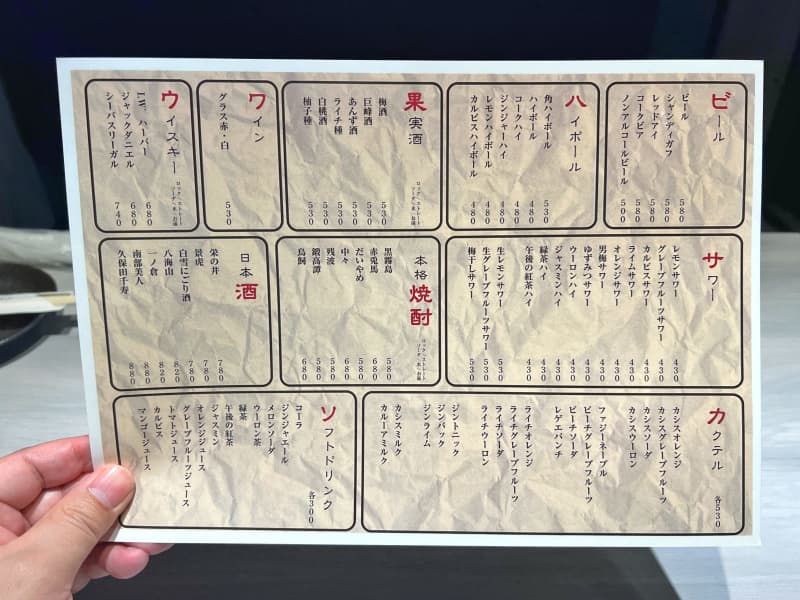 ビール
ビール 580
シャンディガフ 580
レッドアイ 580
コークビア 580
ノンアルコールビール 500
ハイボール
角ハイボール 530
ハイボール 480
コークハイ 480
ジンジャーハイ 480
レモンハイボール 480
カルピスハイボール 480
果実酒
ロック・ストレート
ソーダ・水・お湯
梅酒 530
巨峰酒 530
あんず酒 530
ライチ種 530
白桃酒 530
柚子種 530
ワイン
グラス赤・白 530
ウイスキー
ロック・ストレート
ソーダ・水・お湯
I.W. ハーパー 680
ジャックダニエル 680
シーバスリーガル 740
サワー
レモンサワー 430
グレープフルーツサワー 430
カルピスサワー 430
ライムサワー 430
オレンジサワー 430
男梅サワー 430
ゆずみつサワー 430
ウーロンハイ 430
ジャスミンハイ 430
緑茶ハイ 430
午後の紅茶ハイ 430
生レモンサワー 530
生グレープフルーツサワー 530
梅干しサワー 530
本格焼酎
ロック・ストレート
ソーダ・水・お湯
黒霧島 580
赤兎馬 680
だいやめ 580
中々 680
残波 580
鍛高譚 580
鳥飼 680
日本酒
栄の井 780
景虎 780
白雪にごり酒 780
八海山 820
一ノ倉 820
南部美人 880
久保田千寿 880
カクテル
各530
カシスオレンジ
カシスグレープフルーツ
カシスソーダ
カシスウーロン
ファジーネーブル
ピーチグレープフルーツ
ピーチソーダ
レゲエパンチ
ライチオレンジ
ライチグレープフルーツ
ライチソーダ
ライチウーロン
ジントニック
ジンバック
ジンライム
カシスミルク
カルーアミルク
ソフトドリンク
各300
コーラ
ジンジャエール
メロンソーダ
ウーロン茶
緑茶
午後の紅茶
ジャスミン
オレンジジュース
グレープフルーツジュース
トマトジュース
カルピス
マンゴージュース